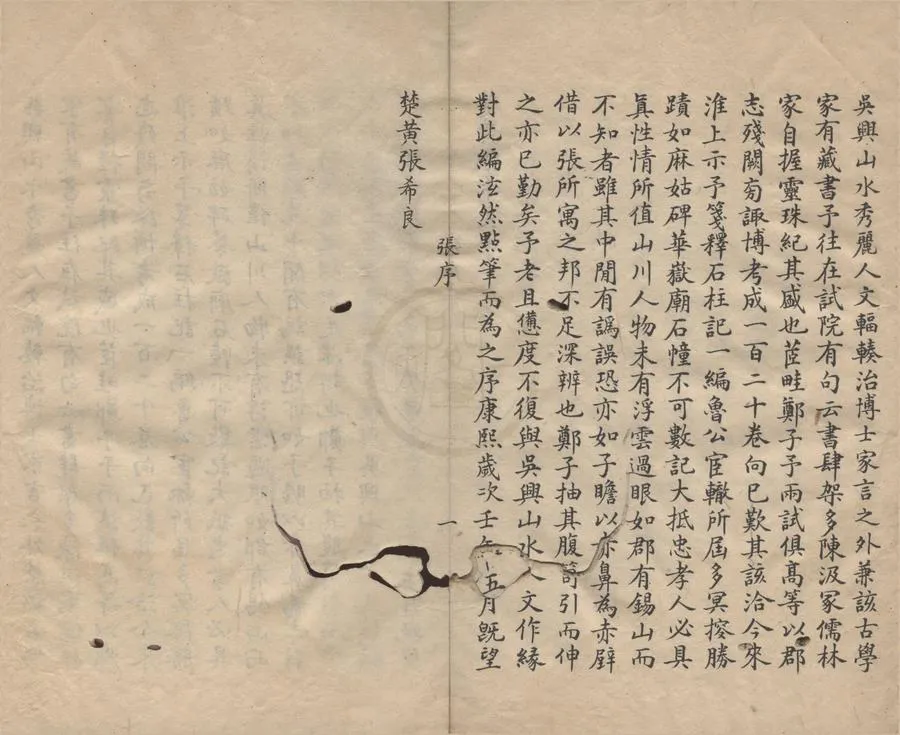 吳興山水秀麗人文輻輳治博士家言之外兼該古學
家有藏書予往在試院有句云書肆架多陳汲冢儒林
家自握靈珠紀其盛也茝畦鄭子予兩試俱高等以郡
志殘闕旁諏博考成一百二十卷向已歎其該洽今來
淮上示予箋釋石柱記一編魯公宦轍所屆多冥搜勝
蹟如麻姑碑華嶽廟石幢不可數記大抵忠孝人必具
真性情所值山川人物未有浮雲過眼如郡有錫山而
不知者雖其中閒有譌誤恐亦如子瞻以赤鼻為赤壁
借以張所寓之邦不足深辨也鄭子抽其腹笥引而伸
之亦已勤矣予老且憊度不復與吳興山水人文作緣
對此編泫然點筆而為之序康熙歲次壬午五月旣望
楚黃張希良
張序
一